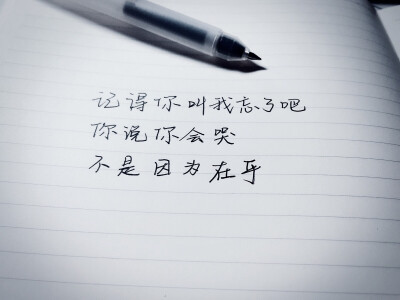 记得你叫我忘了吧
你说你会哭
不是因为在乎